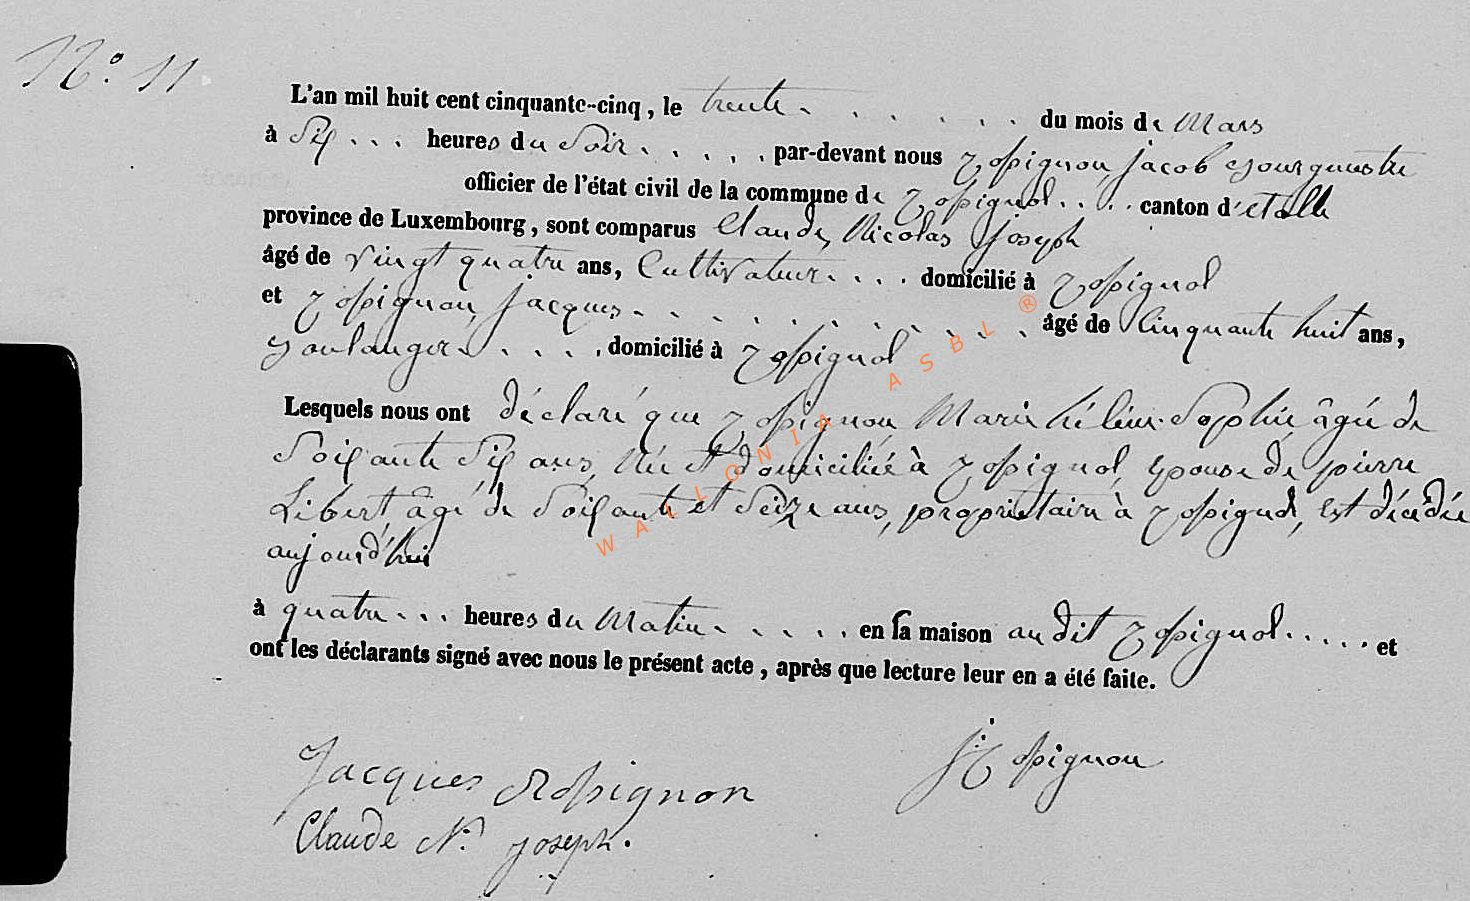 N° 11
L'an mil huit cent cinquante-cinq, le trente . . . . . . du mois de Mars
à Six . . . heures du Soir . . . . . par-devant nous Rossignon, Jacob Bourgmestre
officier de l'état civil de la commune de Rossignol . . . . canton d'étalle
province de Luxembourg, sont comparus Claude, Nicolas Joseph
âgé de vingt quatre ans, Cultivateur . . . . domicilié à Rossignol
et Rossignon, Jacques . . . . . . . . . . . . . âgé de Cinquante huit ans,
Boulanger . . . . . domicilié à Rossignol
Lesquels nous ont déclaré que Rossignon Marie hélène Sophie, âgée de
Soixante Six ans, Née et domiciliée à Rossignol, épouse de pierre
Libert âgé de Soixante et Seize ans, propriétaire à Rossignol, Est décédée
aujourd'hui
à quatre . . . heures du Matin . . . . . en sa maison au dit Rossignol . . . . . et
ont les déclarants signé avec nous le présent acte, après que lecture leur en a été faite.
J: Rossignon
Jacques Rossignon
Claude N. Joseph.
WALLONIA ASBL ®